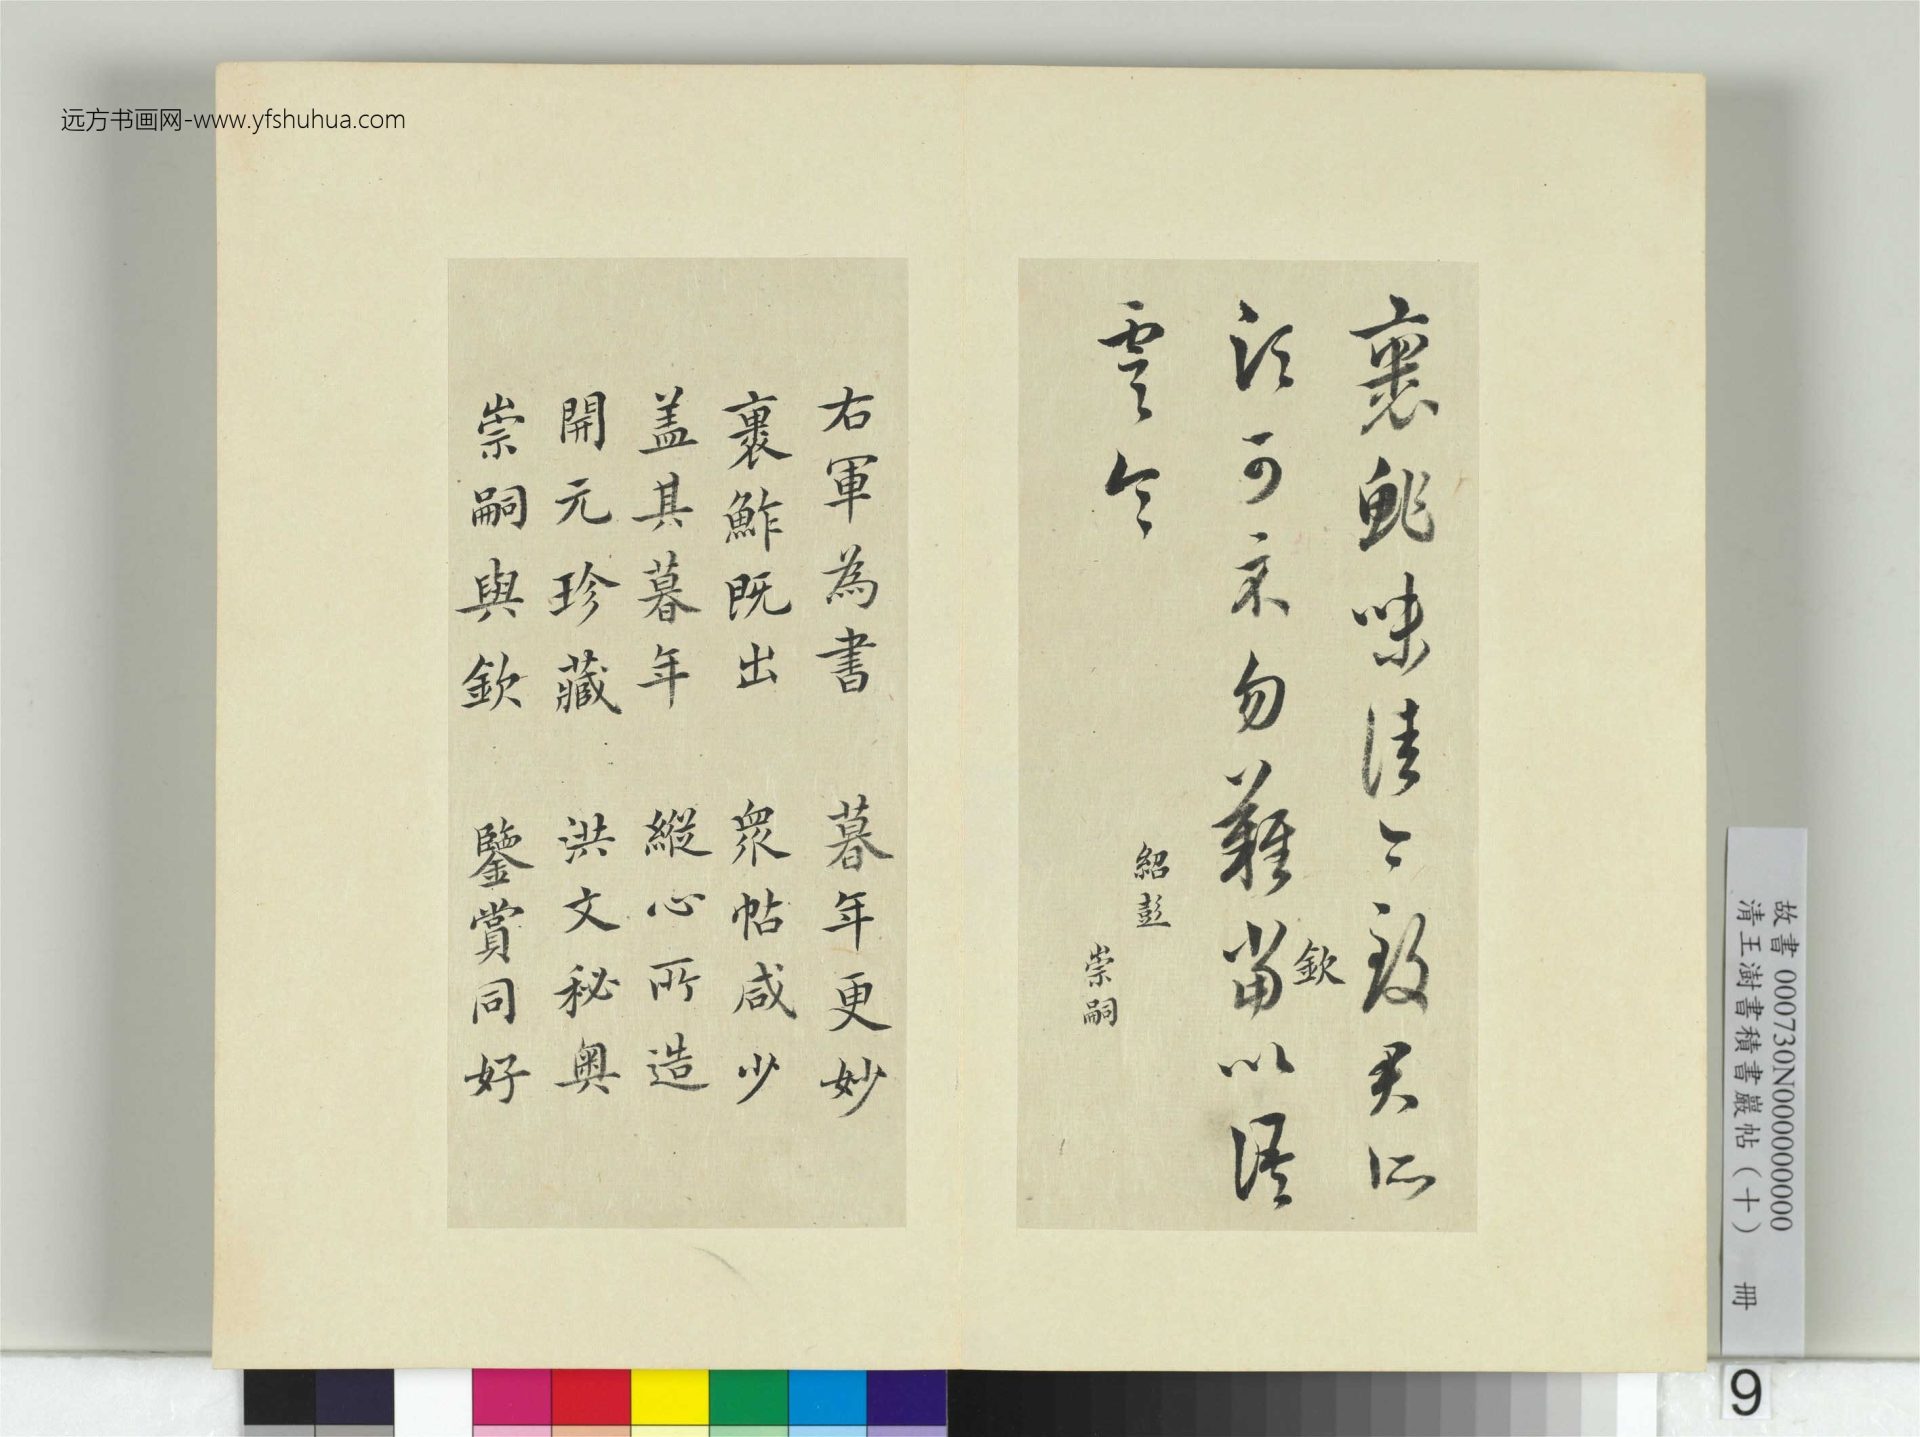 远方书画网-www.yfshuhua.com
裹鲊味佳今致君所
須可示勿難當以語
虞令
欽
紹彭
崇嗣
右軍為書 暮年更妙
裹鮓既出 眾帖咸少
盖其暮年 縱心所造
開元珍藏 洪文秘奥
崇嗣與欽 鑒賞同好
故書 000730N000000000
清王澍書積書巖帖（十） 冊
9